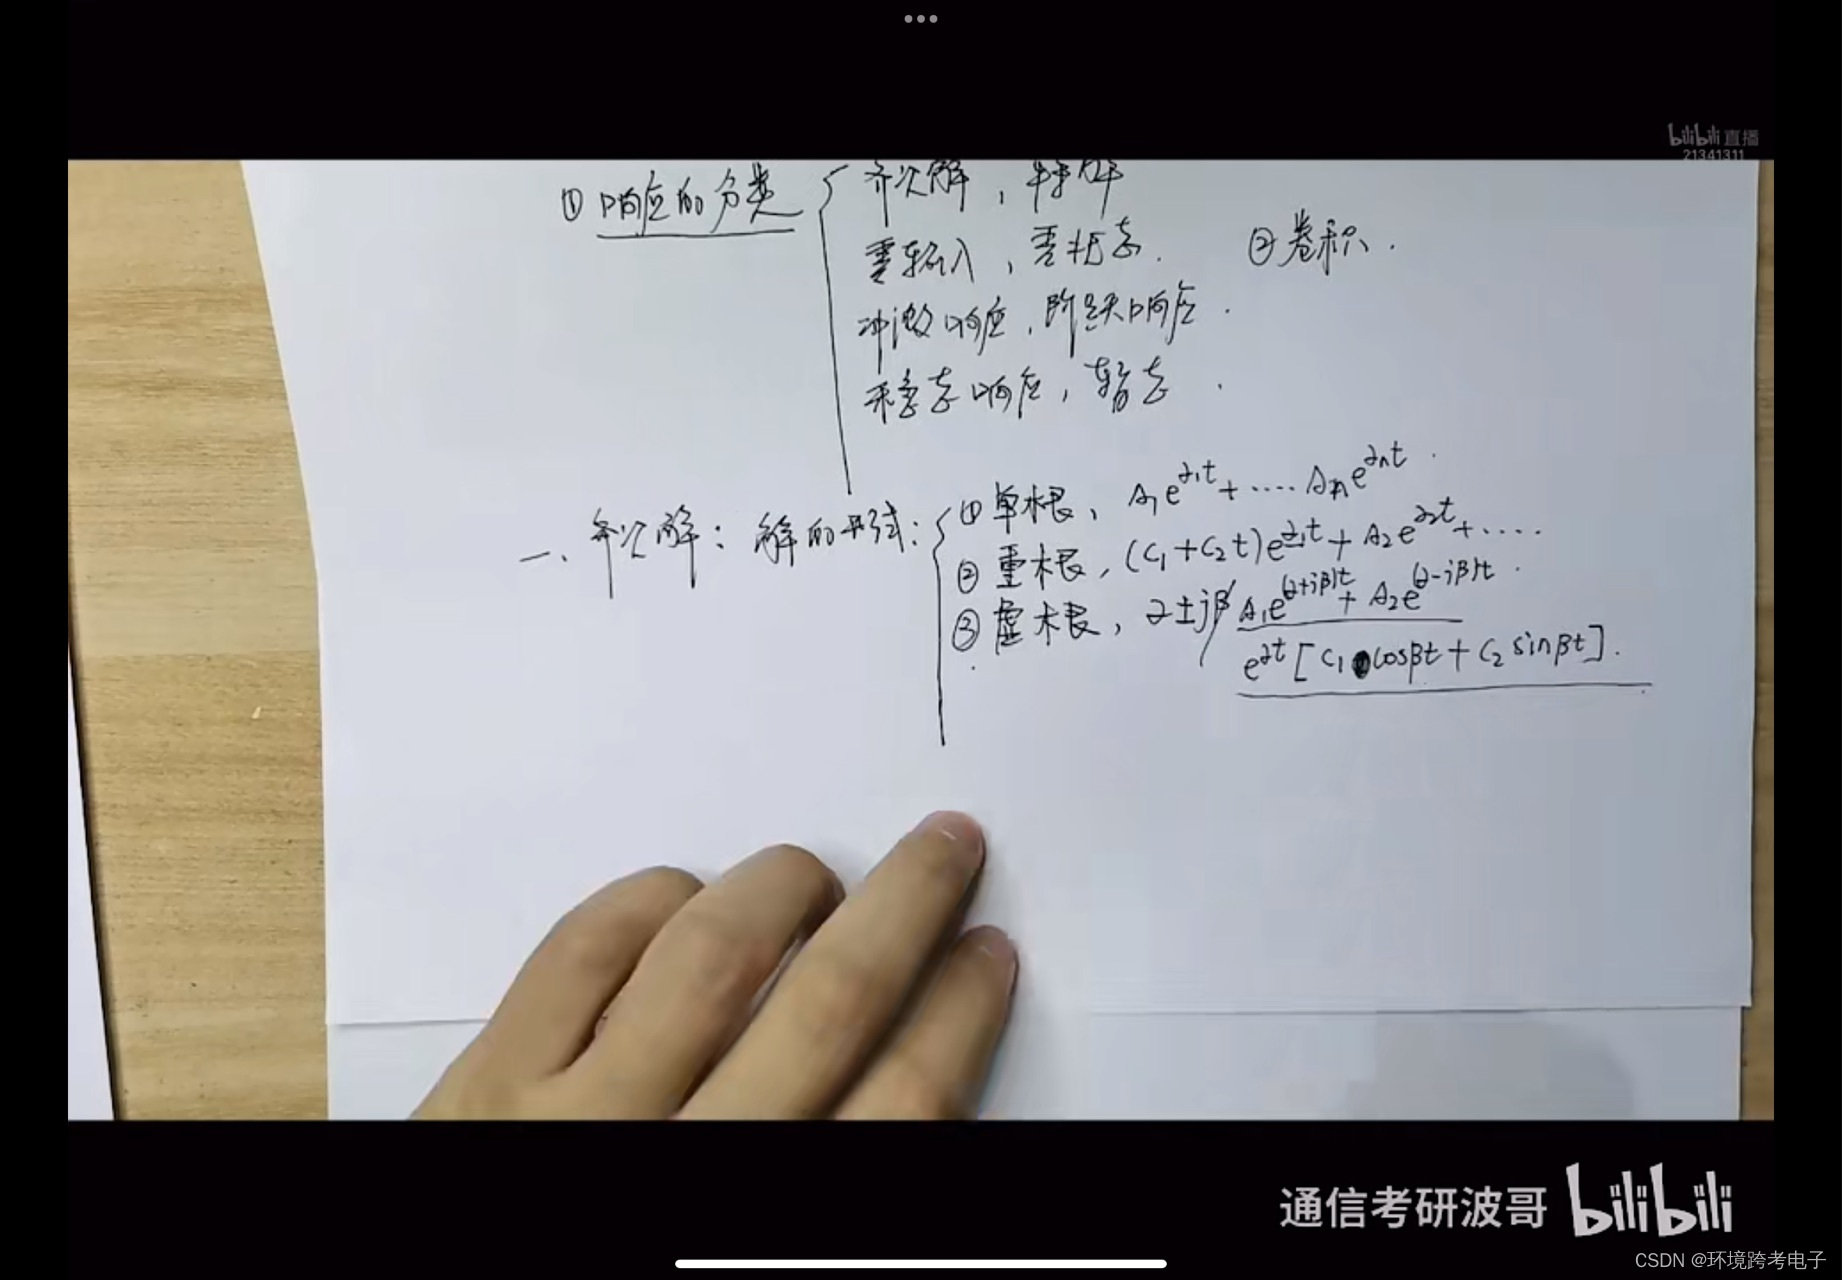 bilibili 直播
21341311
① 响应的分类 { 齐次解, 特解
零输入, 零状态. ② 卷积.
冲激响应, 阶跃响应.
稳态响应, 暂态.
一、齐次解: 解的形式: { ① 单根, A₁e^{α₁t}+....Aₙe^{αₙt}.
② 重根, (C₁+C₂t)e^{α₁t}+A₂e^{α₂t}+....
③ 虚根, α±jβ A₁e^{(α+jβ)t}+A₂e^{(α-jβ)t}.
e^{αt}[C₁cosβt+C₂sinβt].
通信考研波哥 bilibili
CSDN @环境跨考电子